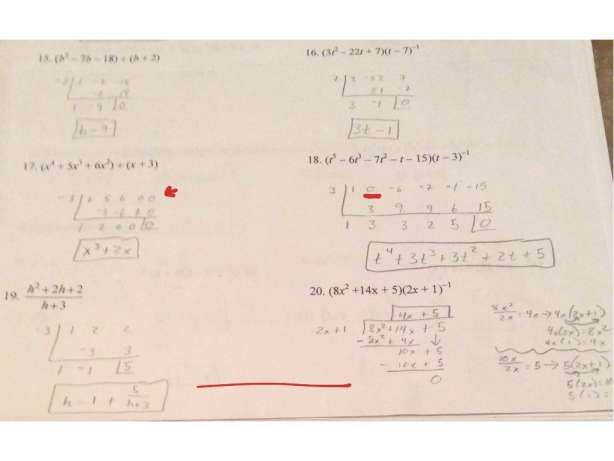 15. (h² − 7h − 18) ÷ (h + 2)
-2 | 1 -7 -18
-2 18
1 -9 | 0
h - 9
16. (3t² − 22t + 7)(t − 7)⁻¹
7 | 3 -22 7
21 -7
3 -1 | 0
3t - 1
17. (x⁴ + 5x³ + 6x²) ÷ (x + 3)
-3 | 1 5 6 0 0
-3 -6 0 0
1 2 0 0 | 0
x³ + 2x
18. (t⁵ − 6t³ − 7t² − t − 15)(t − 3)⁻¹
3 | 1 0 -6 -7 -1 -15
3 9 9 6 15
1 3 3 2 5 | 0
t⁴ + 3t³ + 3t² + 2t + 5
19. h² + 2h + 2
h + 3
-3 | 1 2 2
-3 3
1 -1 | 5
h - 1 + 5
h+3
20. (8x² +14x + 5)(2x + 1)⁻¹
4x + 5
2x+1 8x² + 14x + 5
- 8x² + 4x ↓
10x + 5
- 10x + 5
0
8x²
2x = 4x → 4x(2x+1)
4x(2x) = 8x²
4x(1) = 4x
10x
2x = 5 → 5(2x+1)
5(2x) =
5(1) =